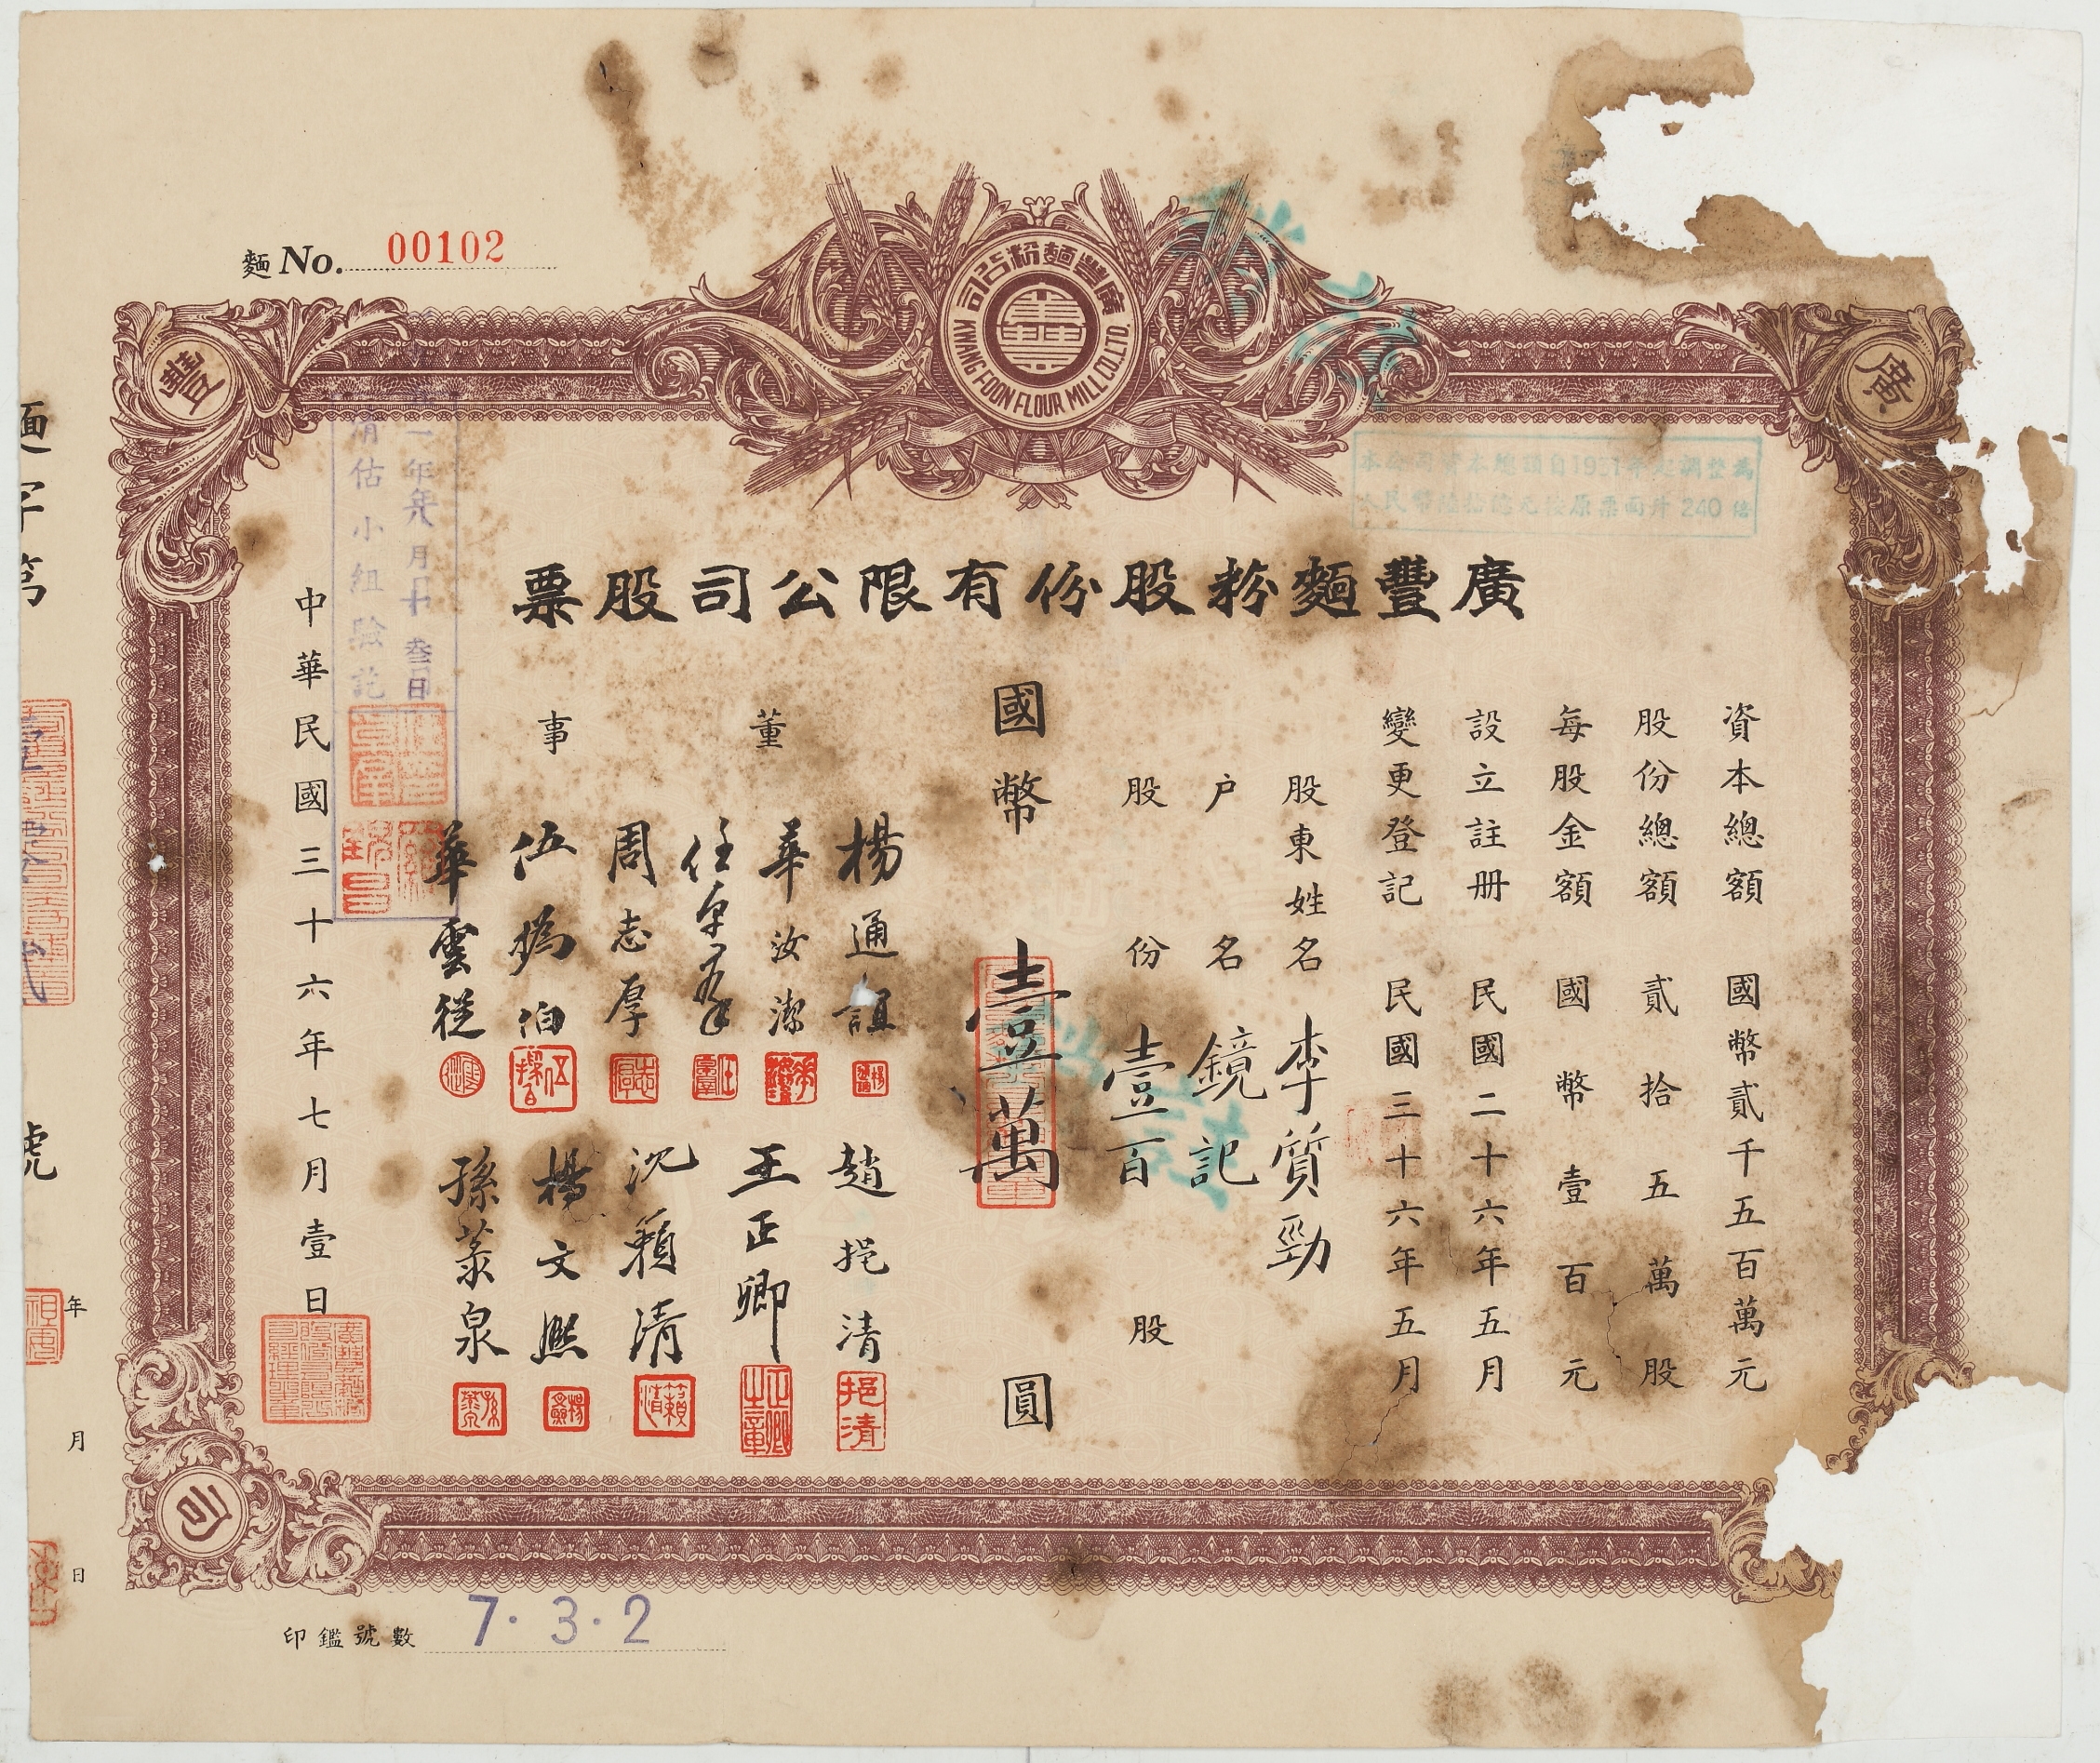 麵 No. 00102
廣豐麵粉公司
KWANG FOON FLOUR MILL CO. LTD.
廣
豐
司
本公司資本總額自1951年起調整為
人民幣陸拾億元按原票面升 240 倍
廣豐麵粉股份有限公司股票
資本總額 國幣貳千五百萬元
股份總額 貳拾五萬股
每股金額 國幣壹百元
設立註册 民國二十六年五月
變更登記 民國三十六年五月
股東姓名 李質勁
户名 鏡記
股份 壹百股
國幣 壹萬 圓
董事
楊通誼
華汝潔
任卓羣
周志厚
伍撝伯
華雲從
趙挹清
王正卿
沈籟清
楊文熙
孫蒸泉
挹清
正卿之章
籟清
清估小組驗訖
中華民國三十六年七月壹日
麵字第
號
年
月
日
印鑑號數 7·3·2